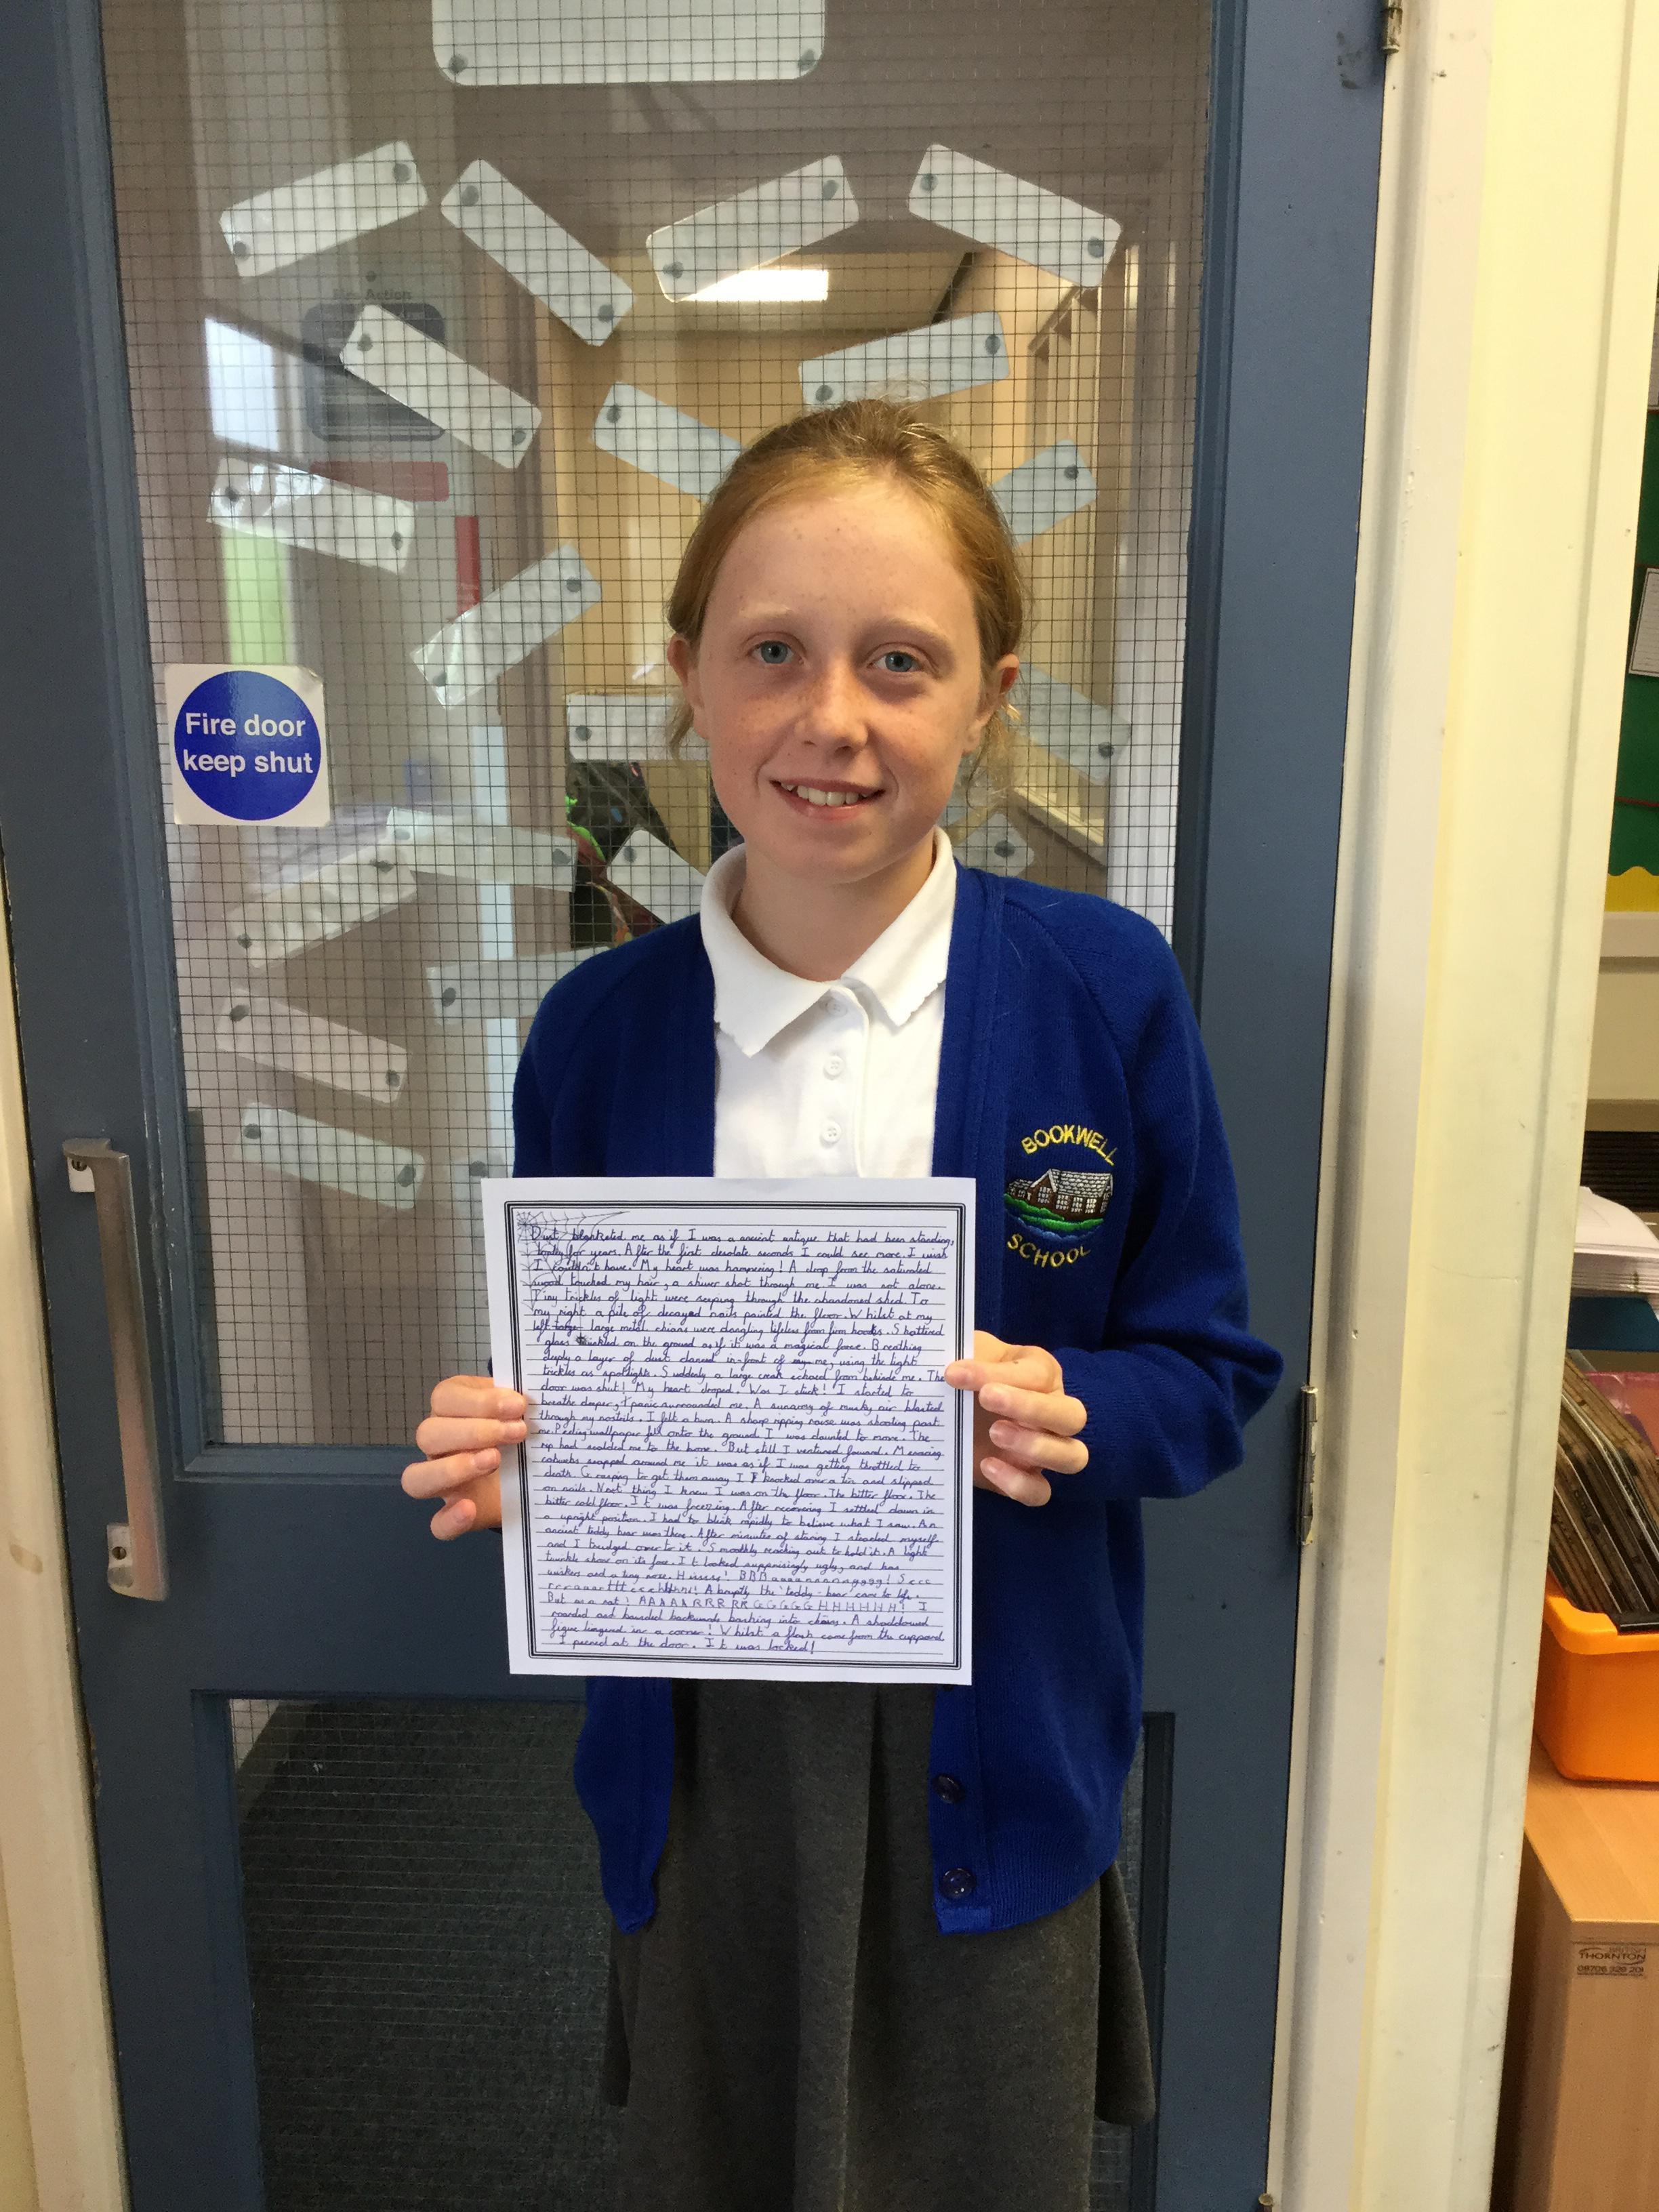 Fire Action
Fire door
keep shut
BOOKWELL
SCHOOL
Dust blanketed me as if I was a ancient antique that had been standing,
for years. After the first desolate seconds I could see more. I wish
I couldn't have. My heart was hammering! A drop from the saturated
wood touched my hair, a shiver shot through me. I was not alone.
Tiny trickles of light were seeping through the abandoned shed. To
my right a pile of decayed nails painted the floor. Whilst at my
left large large metal chians were dangling lifeless from firm hooks. Shattered
glass on the ground as if it was a magical force. Breathing
deeply a layer of dust danced in-front of my me, using the light
trickles as spotlights. Suddenly a large creak echoed from behinde me. The
door was shut! My heart droped. Was I stuck! I started to
breathe deeper, panic surrounded me. A of musky air blasted
through my nostrils. I felt a burn. A sharp ripping noise was shooting past
me. Peeling wallpaper fell onto the ground. I was daunted to move. The
rip had scolded me to the bone. But still I ventured forward. Menacing
cobwebs wrapped around me it was as if I was getting throttled to
death. Grasping to get them away I knocked over a tin and slipped
on nails. Next thing I knew I was on the floor. The bitter floor. The
bitter cold floor. It was freezing. After recovering I settled down in
a upright position. I had to blink rapidly to believe what I saw. An
ancient teddy bear was there. After minutes of staring I steadied myself
and I trudged over to it. Smoothly reaching out to hold it. A light
twinkle shone on its face. It looked supprisingly ugly, and has
wiskers and a tiny nose. Hissss! BBBaaaaaannnngggg! Sccc
rrraaaatttccchhhh! Abruptly the 'teddy-bear' came to life.
But as a rat! AAAAARRRRRGGGGGHHHHHH! I
roarded and bounded backwards bashing into chains. A shaddowed
figue lingered in a corner! Whilst a flash came from the cuppord
I peered at the door. It was locked!
THORNTON